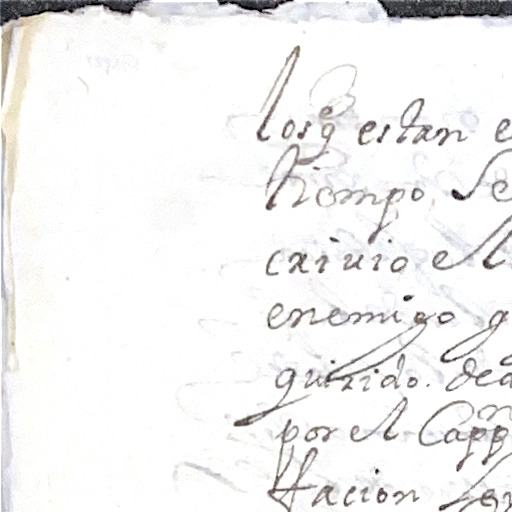 los q̃ estan e
tiempo. Se
criuio el
enemigo q
quirido. de
por el Capp
tacion